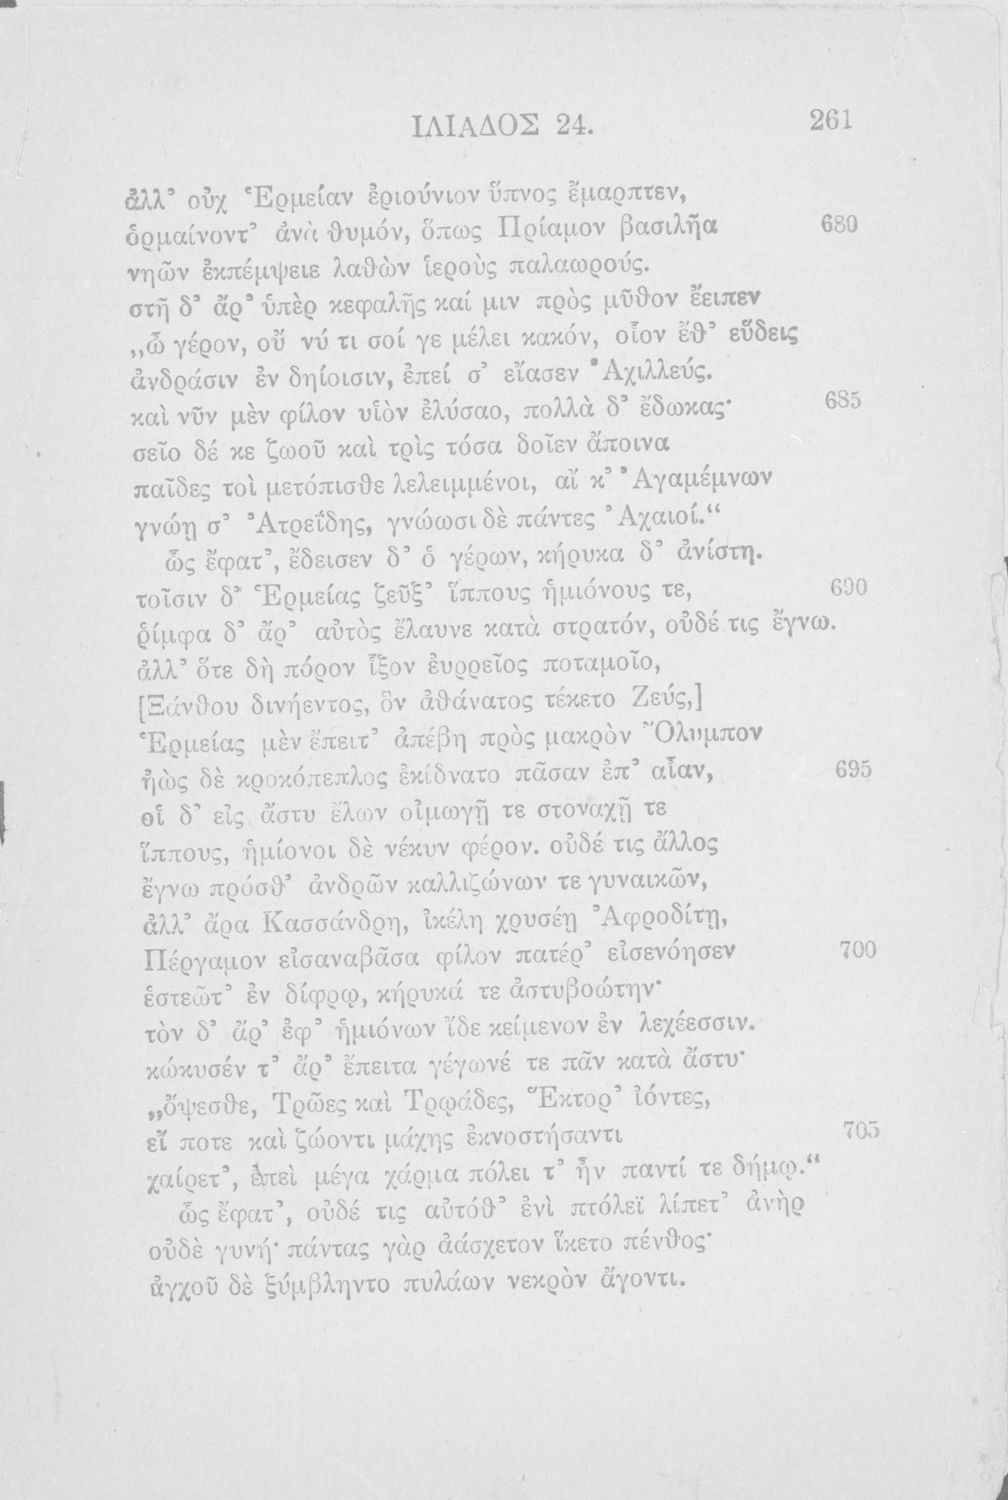 ΙΛΙΑΔΟΣ 24. 261
ἀλλ’ οὐχ Ἑρμείαν ἐριούνιον ὕπνος ἔμαρπτεν,
ὁρμαίνοντ’ ἀνὰ θυμόν, ὅπως Πρίαμον βασιλῆα 680
νηῶν ἐκπέμψειε λαθὼν ἱεροὺς παλαωρούς.
στῆ δ’ ἄρ’ ὑπὲρ κεφαλῆς καί μιν πρὸς μῦθον ἔειπεν
„ὦ γέρον, οὔ νύ τι σοί γε μέλει κακόν, οἷον ἔθ’ εὕδεις
ἀνδράσιν ἐν δηίοισιν, ἐπεί σ’ εἴασεν Ἀχιλλεύς.
καὶ νῦν μὲν φίλον υἱὸν ἐλύσαο, πολλὰ δ’ ἔδωκας· 685
σεῖο δέ κε ζωοῦ καὶ τρὶς τόσα δοῖεν ἄποινα
παῖδες τοὶ μετόπισθε λελειμμένοι, αἴ κ’ Ἀγαμέμνων
γνώῃ σ’ Ἀτρεΐδης, γνώωσι δὲ πάντες Ἀχαιοί.“
ὣς ἔφατ’, ἔδεισεν δ’ ὁ γέρων, κήρυκα δ’ ἀνίστη.
τοῖσιν δ’ Ἑρμείας ζεῦξ’ ἵππους ἡμιόνους τε, 690
ῥίμφα δ’ ἄρ’ αὐτὸς ἔλαυνε κατὰ στρατόν, οὐδέ τις ἔγνω.
ἀλλ’ ὅτε δὴ πόρον ἷξον ἐυρρεῖος ποταμοῖο,
[Ξάνθου δινήεντος, ὃν ἀθάνατος τέκετο Ζεύς,]
Ἑρμείας μὲν ἔπειτ’ ἀπέβη πρὸς μακρὸν Ὄλυμπον
ἠὼς δὲ κροκόπεπλος ἐκίδνατο πᾶσαν ἐπ’ αἶαν, 695
οἱ δ’ εἰς ἄστυ ἔλων οἰμωγῇ τε στοναχῇ τε
ἵππους, ἡμίονοι δὲ νέκυν φέρον. οὐδέ τις ἄλλος
ἔγνω πρόσθ’ ἀνδρῶν καλλιζώνων τε γυναικῶν,
ἀλλ’ ἄρα Κασσάνδρη, ἰκέλη χρυσέῃ Ἀφροδίτῃ,
Πέργαμον εἰσαναβᾶσα φίλον πατέρ’ εἰσενόησεν 700
ἑστεῶτ’ ἐν δίφρῳ, κήρυκά τε ἀστυβοώτην·
τὸν δ’ ἄρ’ ἐφ’ ἡμιόνων ἴδε κείμενον ἐν λεχέεσσιν.
κώκυσέν τ’ ἄρ’ ἔπειτα γέγωνέ τε πᾶν κατὰ ἄστυ·
„ὄψεσθε, Τρῶες καὶ Τρῳάδες, Ἕκτορ’ ἰόντες,
εἴ ποτε καὶ ζώοντι μάχης ἐκνοστήσαντι 705
χαίρετ’, ἐπεὶ μέγα χάρμα πόλει τ’ ἦν παντί τε δήμῳ.“
ὣς ἔφατ’, οὐδέ τις αὐτόθ’ ἐνὶ πτόλεϊ λίπετ’ ἀνὴρ
οὐδὲ γυνή· πάντας γὰρ ἀάσχετον ἵκετο πένθος·
ἀγχοῦ δὲ ξύμβληντο πυλάων νεκρὸν ἄγοντι.